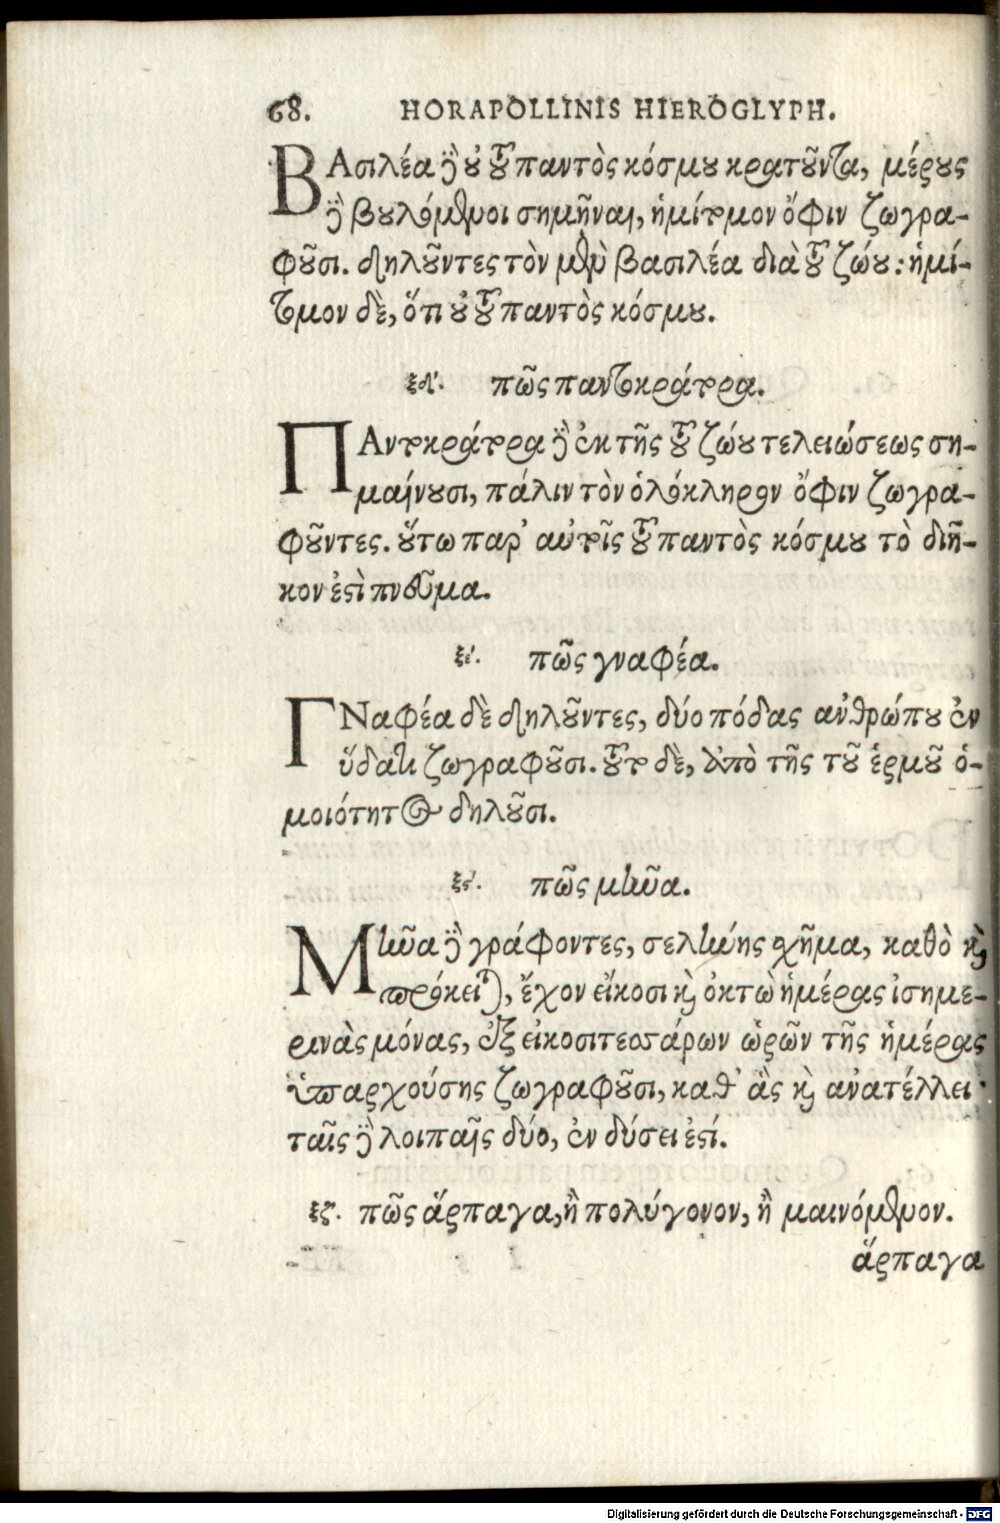 68. HORAPOLLINIS HIEROGLYPH.
ΒΑσιλέα δὲ οὐ τοῦ παντὸς κόσμου κρατοῦντα, μέρους
δὲ βουλόμενοι σημῆναι, ἡμίτομον ὄφιν ζωγρα-
φοῦσι. δηλοῦντες τὸν μὲν βασιλέα διὰ τοῦ ζώου: ἡμί-
τομον δὲ, ὅτι οὐ τοῦ παντὸς κόσμου.
ξδʹ. πῶς παντοκράτορα.
ΠΑντοκράτορα δὲ ἐκ τῆς τοῦ ζώου τελειώσεως ση-
μαίνουσι, πάλιν τὸν ὁλόκληρον ὄφιν ζωγρα-
φοῦντες. οὕτω παρ' αὐτοῖς τοῦ παντὸς κόσμου τὸ διῆ-
κον ἐστὶ πνεῦμα.
ξεʹ. πῶς γναφέα.
ΓΝαφέα δὲ δηλοῦντες, δύο πόδας ἀνθρώπου ἐν
ὕδατι ζωγραφοῦσι. τοῦτο δὲ, ἀπὸ τῆς τοῦ ἑρμοῦ ὁ-
μοιότητος δηλοῦσι.
ξςʹ. πῶς μῆνα.
Μῆνα δὲ γράφοντες, σελήνης σχῆμα, καθὸ καὶ
πρόκειται, ἔχον εἴκοσι καὶ ὀκτὼ ἡμέρας ἰσημε-
ρινὰς μόνας, ἐξ εἰκοσιτεσσάρων ὡρῶν τῆς ἡμέρας
ὑπαρχούσης ζωγραφοῦσι, καθ' ἃς καὶ ἀνατέλλει·
ταῖς δὲ λοιπαῖς δύο, ἐν δύσει ἐστί.
ξζʹ. πῶς ἅρπαγα, ἢ πολύγονον, ἢ μαινόμενον.
ἅρπαγα
Digitalisierung gefördert durch die Deutsche Forschungsgemeinschaft - DFG